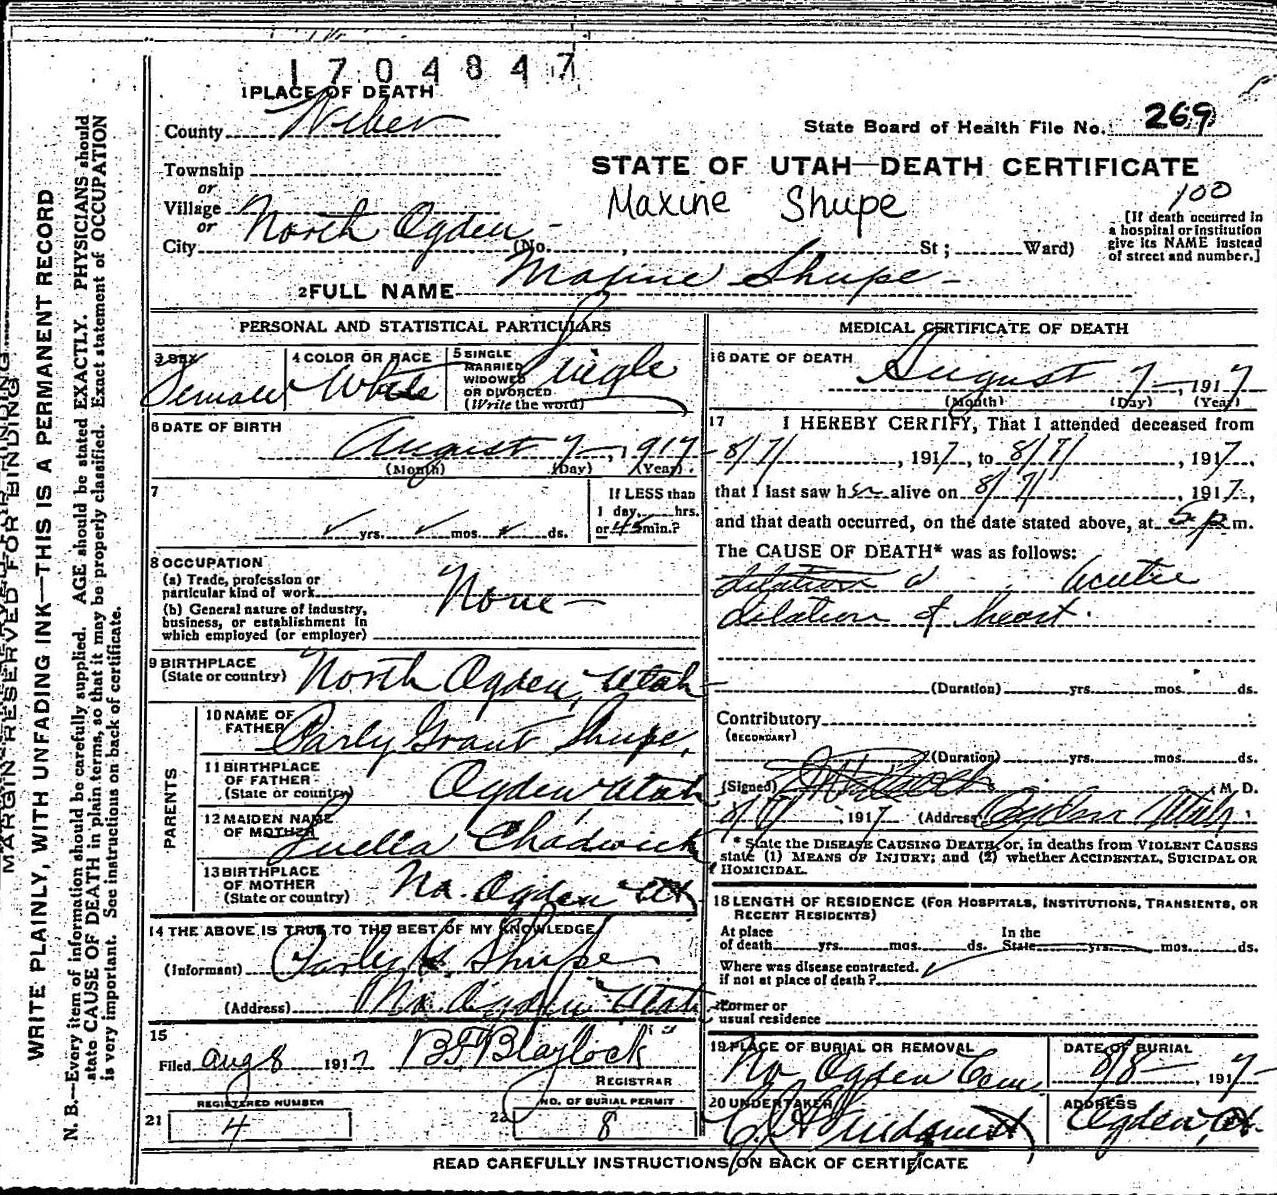 1704847
1 PLACE OF DEATH
County Weber
State Board of Health File No. 269
STATE OF UTAH—DEATH CERTIFICATE
Township
or
Village
or
Maxine Shupe
100
[If death occurred in
a hospital or institution
give its NAME instead
of street and number.]
City North Ogden (No. , St ; Ward)
2 FULL NAME Maxine Shupe
PERSONAL AND STATISTICAL PARTICULARS
3 SEX Female
4 COLOR OR RACE White
5 SINGLE
MARRIED
WIDOWED
OR DIVORCED
(Write the word)
Single
6 DATE OF BIRTH
August 7, 1917
(Month) (Day) (Year)
7
yrs. mos. ds.
If LESS than
1 day, hrs.
or 45 min.?
8 OCCUPATION
(a) Trade, profession or
particular kind of work None
(b) General nature of industry,
business, or establishment in
which employed (or employer)
9 BIRTHPLACE
(State or country) North Ogden, Utah
PARENTS
10 NAME OF
FATHER Parly Grant Shupe,
11 BIRTHPLACE
OF FATHER
(State or country) Ogden Utah
12 MAIDEN NAME
OF MOTHER Luella Chadwick
13 BIRTHPLACE
OF MOTHER
(State or country) No. Ogden Ut
14 THE ABOVE IS TRUE TO THE BEST OF MY KNOWLEDGE
(Informant) Parly G. Shupe
(Address) No. Ogden Utah
15
Filed Aug 8 1917 B.F. Blaylock
REGISTRAR
REGISTERED NUMBER
21 4
NO. OF BURIAL PERMIT
22 8
MEDICAL CERTIFICATE OF DEATH
16 DATE OF DEATH
August 7 1917
(Month) (Day) (Year)
17 I HEREBY CERTIFY, That I attended deceased from
8/7/, 1917, to 8/7/, 1917,
that I last saw her alive on 8/7/, 1917,
and that death occurred, on the date stated above, at 5 p m.
The CAUSE OF DEATH* was as follows:
dilation of acute
dilation of heart.
(Duration) yrs. mos. ds.
Contributory
(SECONDARY)
(Duration) yrs. mos. ds.
(Signed) M. D.
8/7/, 1917 (Address) Ogden Utah
* State the DISEASE CAUSING DEATH, or, in deaths from VIOLENT CAUSES
state (1) MEANS OF INJURY; and (2) whether ACCIDENTAL, SUICIDAL OR
HOMICIDAL.
18 LENGTH OF RESIDENCE (FOR HOSPITALS, INSTITUTIONS, TRANSIENTS, OR
RECENT RESIDENTS)
At place
of death yrs. mos. ds.
In the
State yrs. mos. ds.
Where was disease contracted.
if not at place of death?
Former or
usual residence
19 PLACE OF BURIAL OR REMOVAL
No Ogden Cem
DATE OF BURIAL
8/8, 1917
20 UNDERTAKER
Lindquist
ADDRESS
Ogden, Ut.
READ CAREFULLY INSTRUCTIONS ON BACK OF CERTIFICATE
MARGIN RESERVED FOR BINDING
WRITE PLAINLY, WITH UNFADING INK—THIS IS A PERMANENT RECORD
N. B.—Every item of information should be carefully supplied. AGE should be stated EXACTLY. PHYSICIANS should
state CAUSE OF DEATH in plain terms, so that it may be properly classified. Exact statement of OCCUPATION
is very important. See instructions on back of certificate.